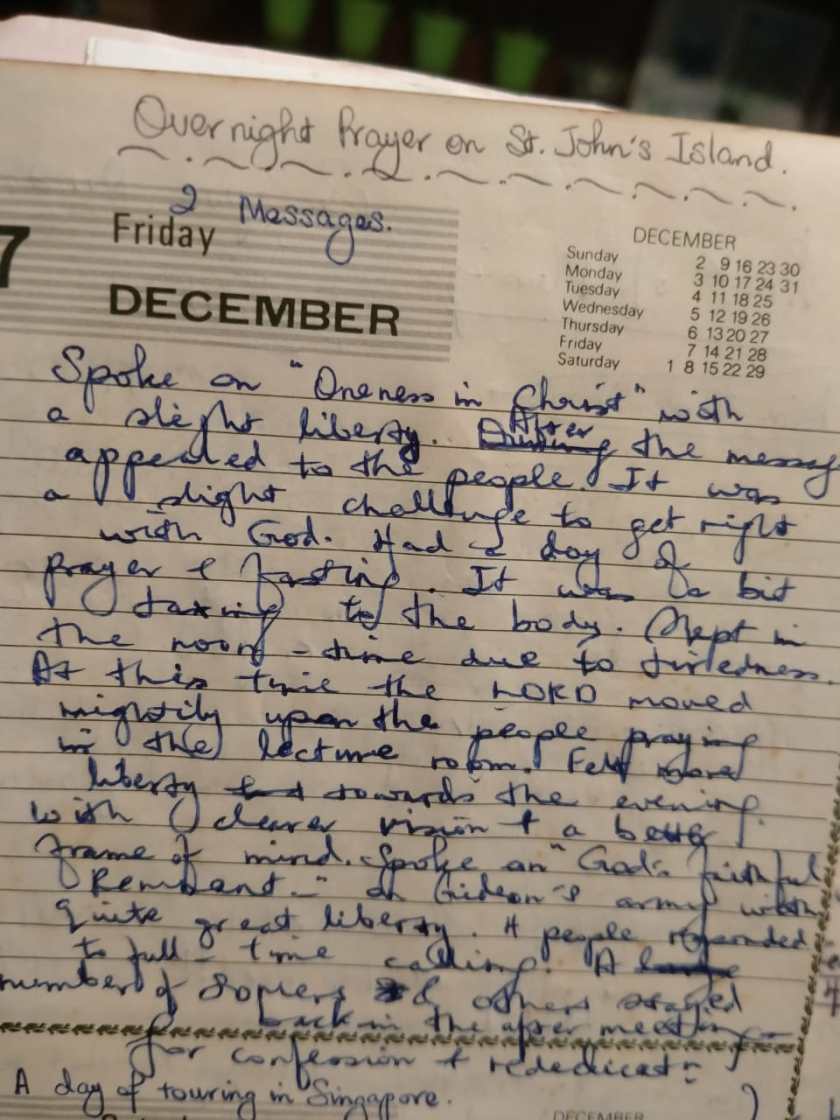 Overnight Prayer on St. John's Island.
2 Messages.
7 Friday
DECEMBER
DECEMBER
Sunday 2 9 16 23 30
Monday 3 10 17 24 31
Tuesday 4 11 18 25
Wednesday 5 12 19 26
Thursday 6 13 20 27
Friday 7 14 21 28
Saturday 1 8 15 22 29
Spoke on "Oneness in Christ" with
a slight liberty. After the messag
appealed to the people. It was
a slight challenge to get right
with God. Had a day of
prayer & fasting. It was a bit
taxing to the body. Slept in
the noon-time due to tiredness.
At this time the LORD moved
mightily upon the people praying
in the lecture room. Felt more
liberty towards the evening
with clearer vision & a better
frame of mind. Spoke on "God's faithful
Remnant" on Gideon's army with
quite great liberty. 4 people responded
to full-time calling. A
number of & others stayed
back in the after meeting
for confession & rededicatn
A day of touring in Singapore.
DECEMBER